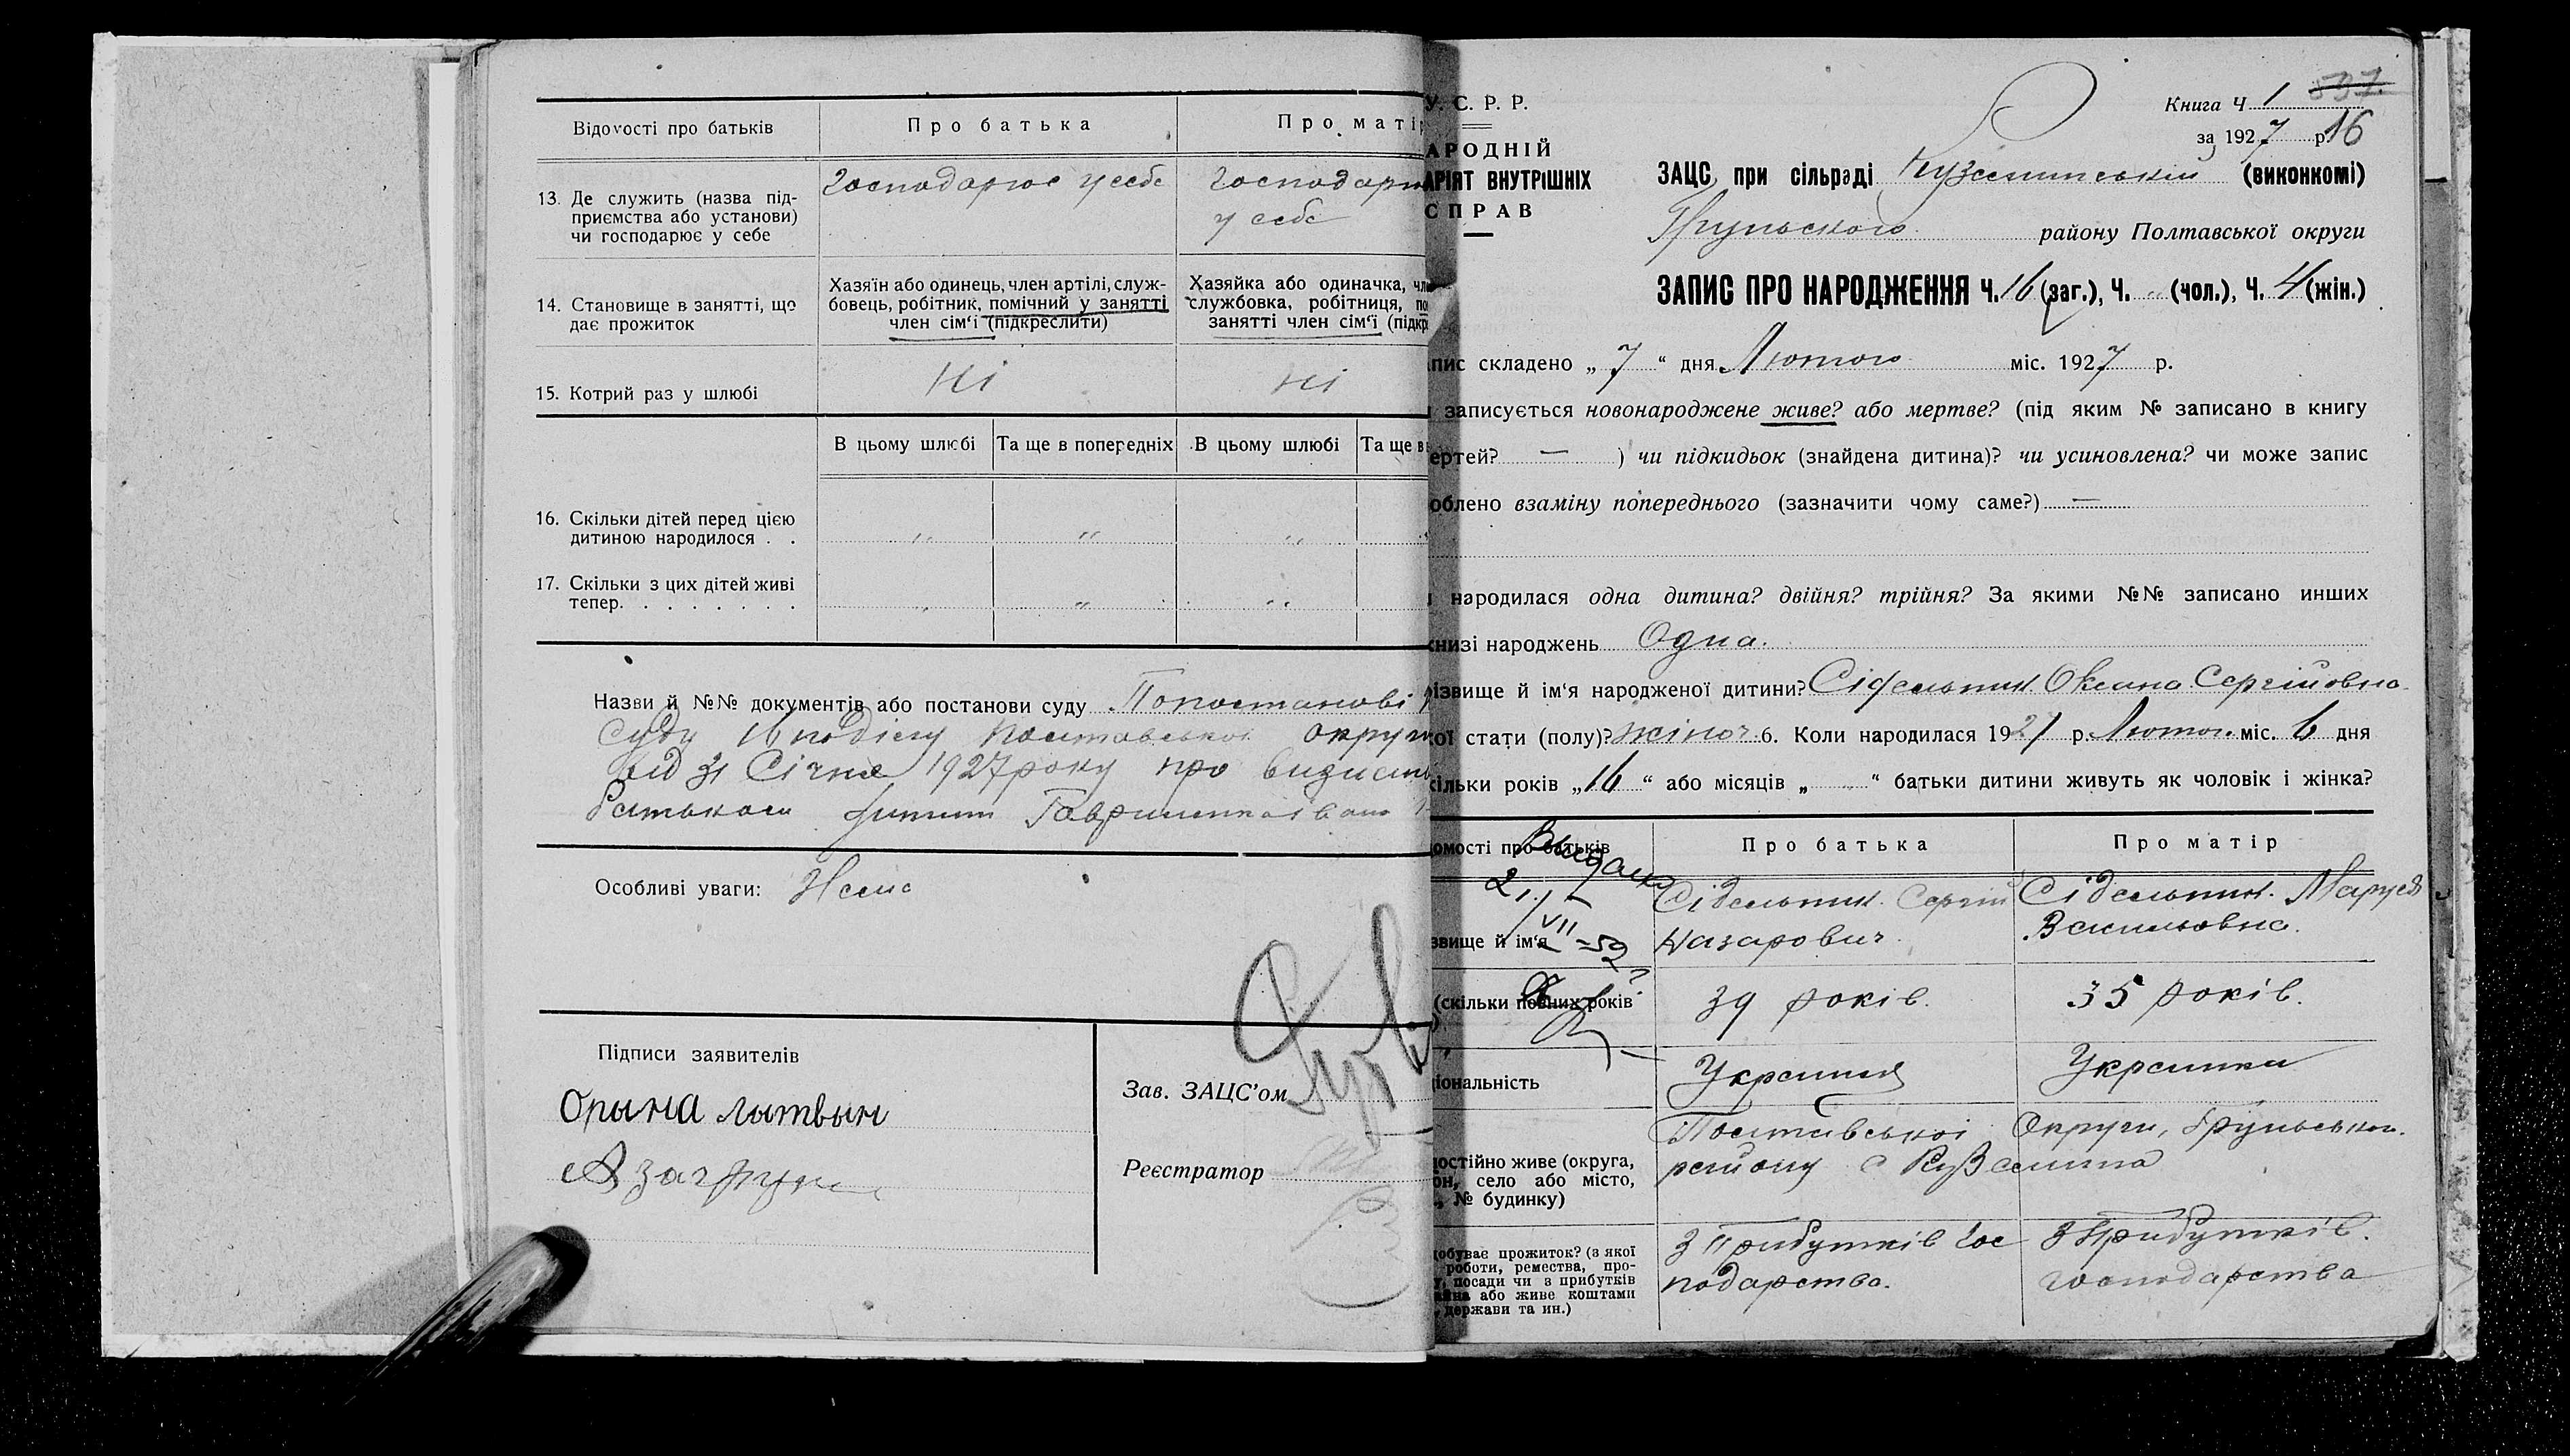 Відомості про батьків
Про батька
Про маті
13. Де служить (назва під-
приємства або установи)
чи господарює у себе
Господарює у себе
Господарює
у себе
14. Становище в занятті, що
дає прожиток
Хазяїн або одинець, член артілі, служ-
бовець, робітник, помічний у занятті
член сім‘ї (підкреслити)
Хазяйка або одиначка, чл
службовка, робітниця, по
занятті член сім‘ї (підкр
15. Котрий раз у шлюбі
Ні
Ні
В цьому шлюбі
Та ще в попередніх
В цьому шлюбі
Та ще в
16. Скільки дітей перед цією
дитиною народилося . .
17. Скільки з цих дітей живі
тепер. . . . . . . .
Назви й №№ документів або постанови суду По постанові
Суду 16 поділу Полтавської округи
від 31 Січня 1927 року про визнання
батьком дитини Гавриленка Івана
Особливі уваги: Нема
Підписи заявителів
Орына Лытвын
Зав. ЗАЦС’ом
Реєстратор
У. С. Р. Р.
АРОДНІЙ
АРІЯТ ВНУТРІШНІХ
СПРАВ
Книга Ч 1 537
за 1927 р. 16
ЗАЦС при сільраді Куземинській (виконкомі)
Грунського району Полтавської округи
ЗАПИС ПРО НАРОДЖЕННЯ Ч. 16 (заг.), Ч. (чол.), Ч. 4 (жін.)
пис складено „ 7 “ дня Лютого міс. 1927 р.
записується новонароджене живе? або мертве? (під яким № записано в книгу
ертей? — ) чи підкидьок (знайдена дитина)? чи усиновлена? чи може запис
облено взаміну попереднього (зазначити чому саме?) —
народилася одна дитина? двійня? трійня? За якими №№ записано инших
книзі народжень Одна.
ізвище й ім‘я народженої дитини? Сідельник Оксана Сергійовна
ої стати (полу)? жіноч. 6. Коли народилася 1927 р. Лютого міс. 6 дня
кільки років „16“ або місяців „ “ батьки дитини живуть як чоловік і жінка?
омості про батьків
Про батька
Про матір
Видано
21/VII-52
звище й ім‘я
Сідельник Сергій
Назарович
Сідельник Маруся
Васильовна
(скільки повних років
39 років.
35 років.
іональність
Украинец
Украинка
остійно живе (округа,
он, село або місто,
., № будинку)
Полтавської Округи, Грунського
району с Куземина
обуває прожиток? (з якої
роботи, ремества, про-
у, посади чи з прибутків
айна або живе коштами
, держави та ин.)
З Прибутків Гос
подарства.
З Прибутків
господарства